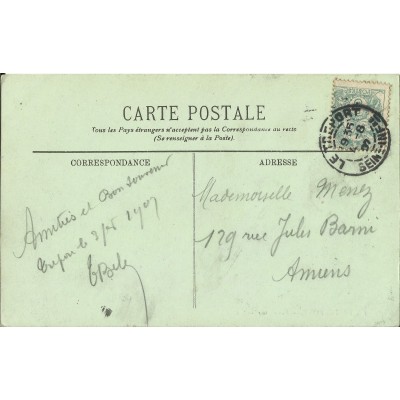 CARTE POSTALE
Tous les Pays étrangers n'acceptent pas la Correspondance au recto
(Se renseigner à la Poste)
CORRESPONDANCE
ADRESSE
LE TREPORT SEINE
Amitiés et Bon Souvenir
le 1907
Mademoiselle Monez
129 rue Jules Barni
Amiens